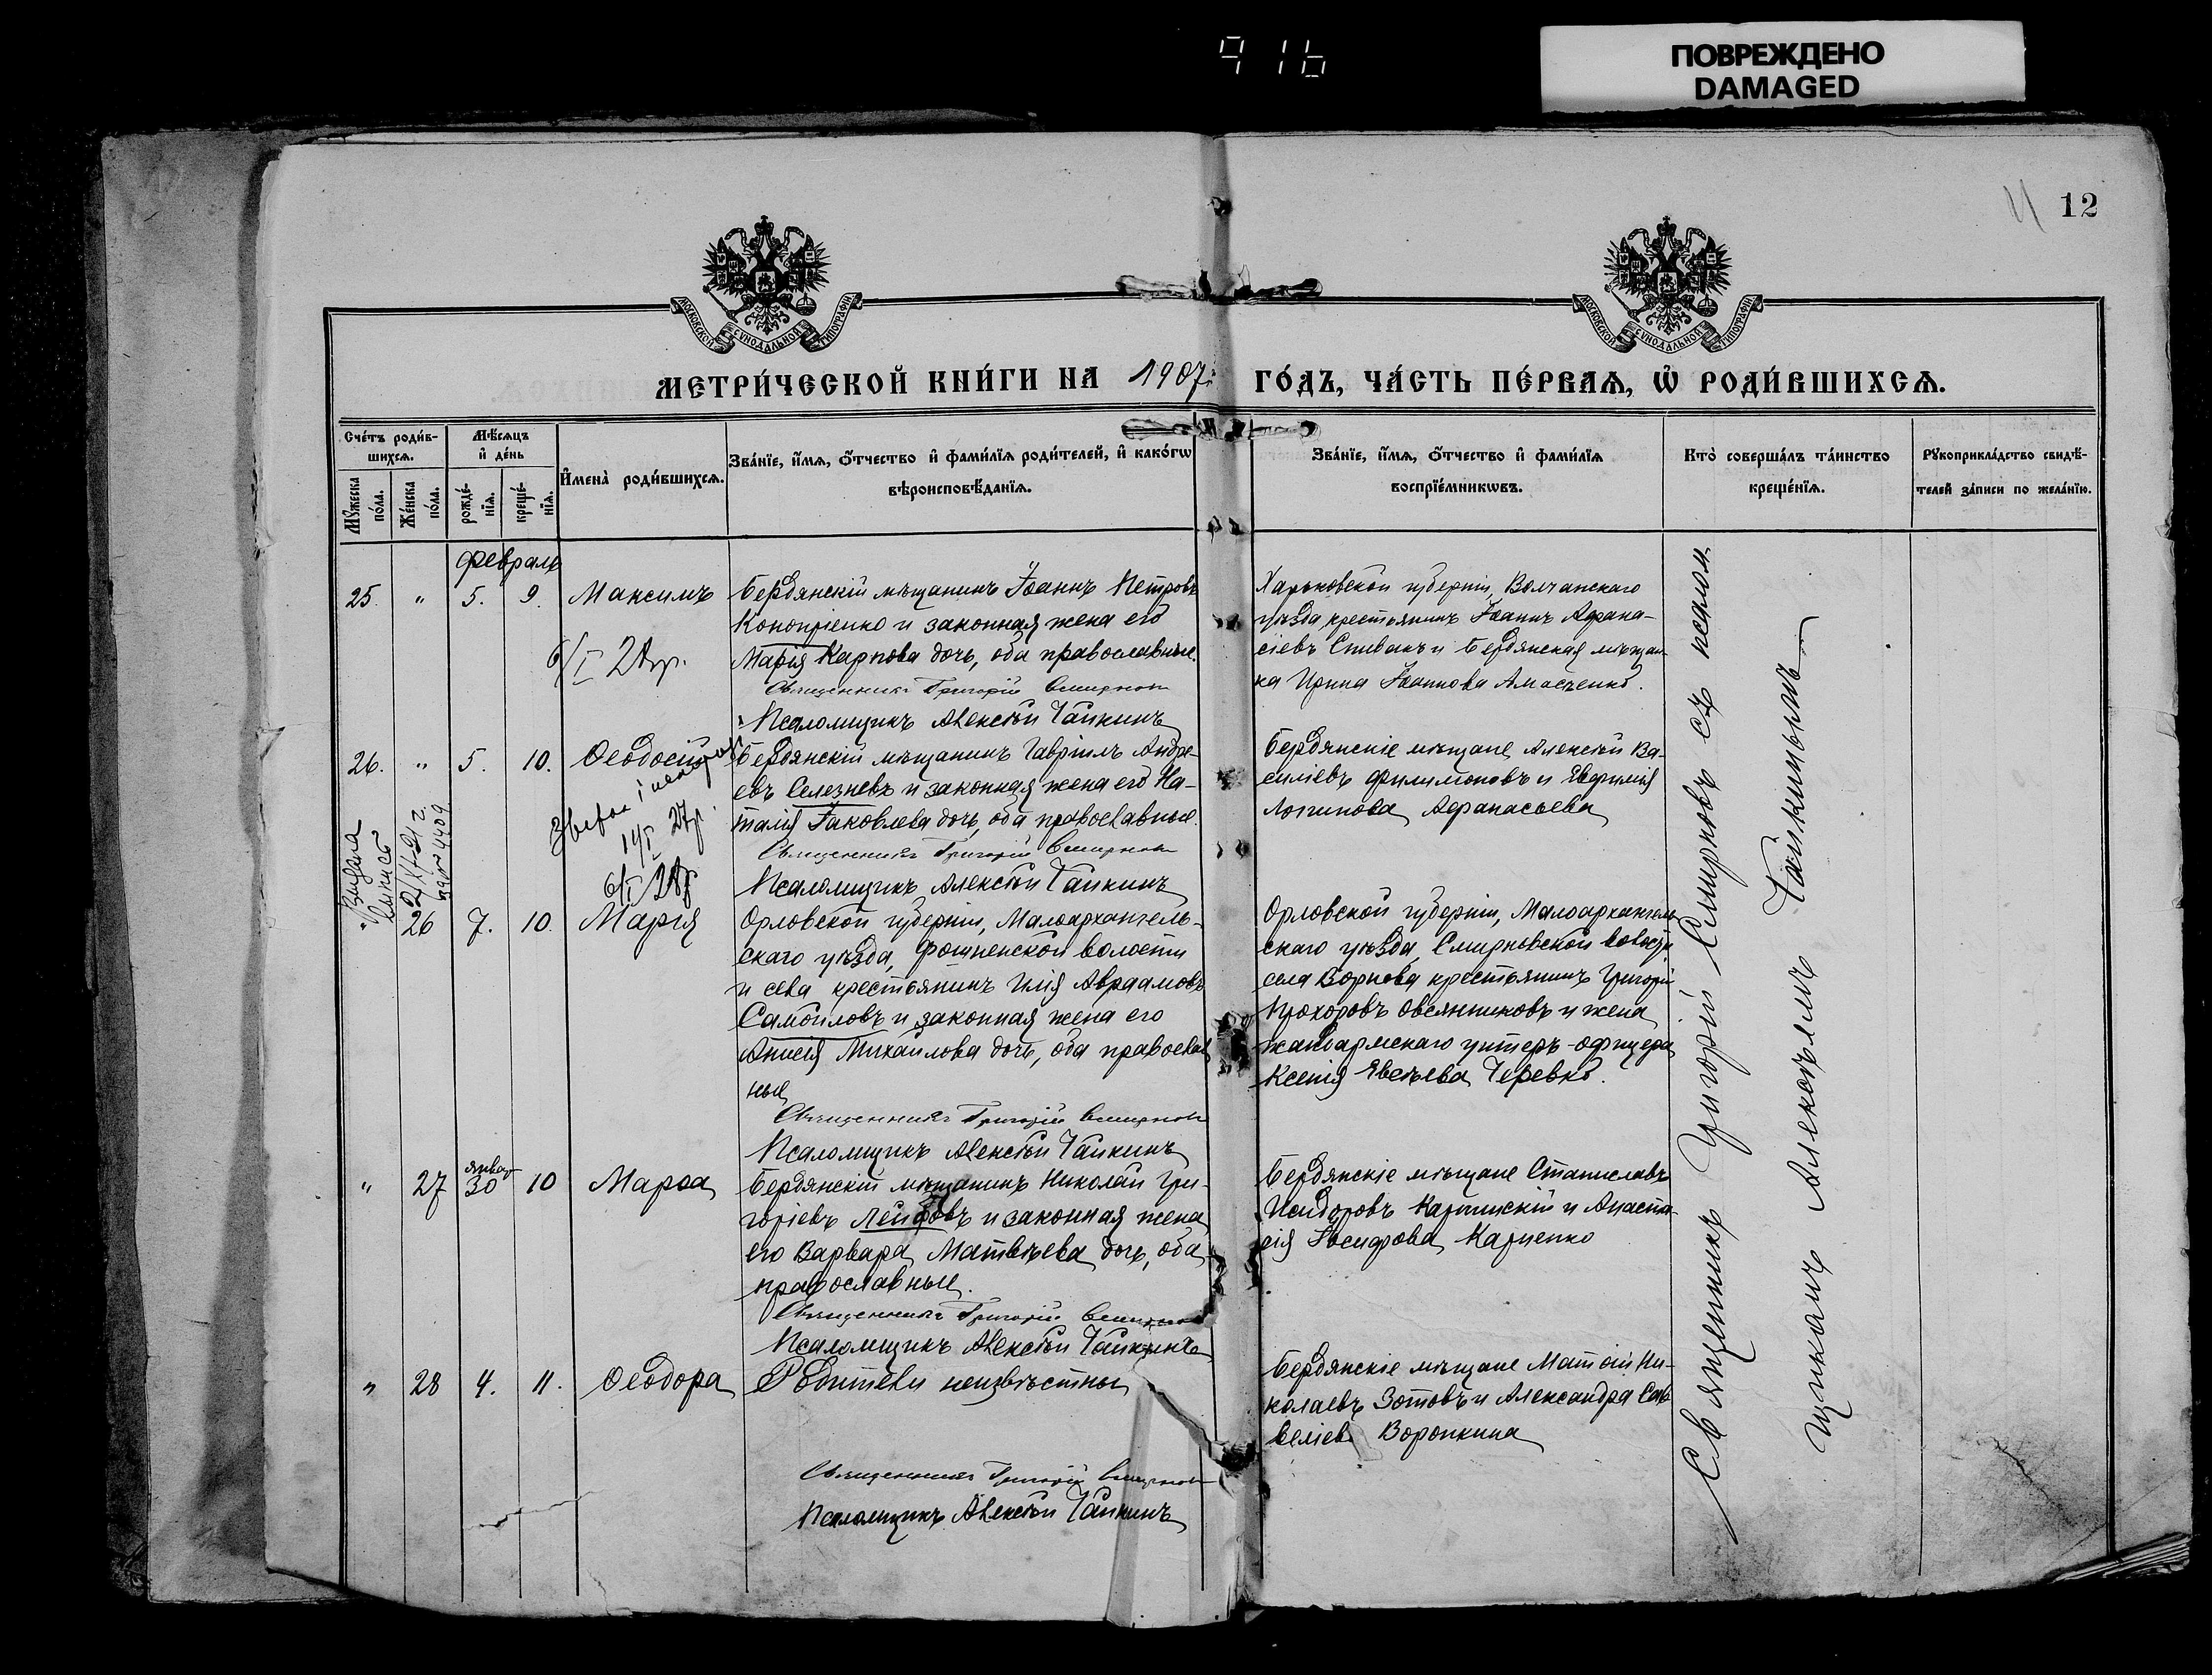 916
ПОВРЕЖДЕНО
DAMAGED
12
МОСКОВСКОЙ СѴНОДАЛЬНОЙ ТИПОГРАФІИ
МОСКОВСКОЙ СѴНОДАЛЬНОЙ ТИПОГРАФІИ
МЕТРИ́ЧЕСКОЙ КНИ́ГИ НА 1907 ГО́ДЪ, ЧА́СТЬ ПЕ́РВАѦ, Ѡ҆ РОДИ́ВШИХСѦ.
Сче́тъ роди́в-
шихсѧ.
Мꙋ́жеска по́ла.
Же́нска по́ла.
Мѣ́сѧцъ
и҆ де́нь
рожде́-
нїѧ.
креще́-
нїѧ.
И҆мена̀ роди́вшихсѧ.
Зва́нїе, и҆́мѧ, ѻ҆́тчество и҆ фами́лїѧ роди́телей, и҆ како́гѡ
вѣроисповѣ́данїѧ.
Зва́нїе, и҆́мѧ, ѻ҆́тчество и҆ фами́лїѧ
воспрїе́мникѡвъ.
Кто̀ соверша́лъ та́инство
креще́нїѧ.
Рꙋкоприкла́дство свидѣ́-
телей за́писи по жела́нїю.
Февраль
25. " 5. 9. Максимъ
Бердянскій мѣщанинъ Іоаннъ Петровъ
Коноприенко и законная жена его
Марія Карпова дочь, оба православные.
Священникъ Григорій Смирновъ
Псаломщикъ Алексѣй Чайкинъ
Харьковской губерніи, Волчанскаго
уѣзда, крестьянинъ Іоаннъ Афана-
сіевъ Спивакъ и Бердянская мѣщан-
ка Ирина Іоаннова
26. " 5. 10. Ѳеодосій
Бердянскій мѣщанинъ Гавріилъ Андре-
евъ Селезневъ и законная жена его На-
талія Іаковлева дочь, оба православные.
Священникъ Григорій Смирновъ
Псаломщикъ Алексѣй Чайкинъ
Бердянскіе мѣщане, Алексѣй Ва-
силіевъ Филимоновъ и Евфимія
Логинова Афанасьева
Выдана
выпись
" 26 7. 10. Марія
Орловской губерніи, Малоархангель-
скаго уѣзда, Фошненской волости
и села крестьянинъ Илія Авраамовъ
Самойловъ и законная жена его
Анисія Михаилова дочь, оба православ
ные
Священникъ Григорій Смирновъ
Псаломщикъ Алексѣй Чайкинъ
Орловской губерніи, Малоархангель
скаго уѣзда, Смирновской волости
села крестьянинъ Григорій
Прохоровъ Овсянниковъ и жена
жандармскаго унтеръ-офицера
Ксенія Черевко.
" 27 январ 30 10 Марѳа
Бердянскій мѣщанинъ Николай Гри-
горіевъ и законная жена
его Варвара Матвѣева дочь, оба
православные.
Священникъ Григорій Смирновъ
Псаломщикъ Алексѣй Чайкинъ
Бердянскіе мѣщане Станиславъ
Исидоровъ и Анаста-
сія Іосифова Карпенко
" 28 4. 11. Ѳеодора
Родители неизвѣстны
Священникъ Григорій Смирновъ
Псаломщикъ Алексѣй Чайкинъ
Бердянскіе мѣщане Матѳій Ни-
колаевъ Зотовъ и Александра Сав
веліева Воронкина
Священникъ Григорій Смирновъ съ псалом
щикомъ Алексѣемъ Чайкинымъ